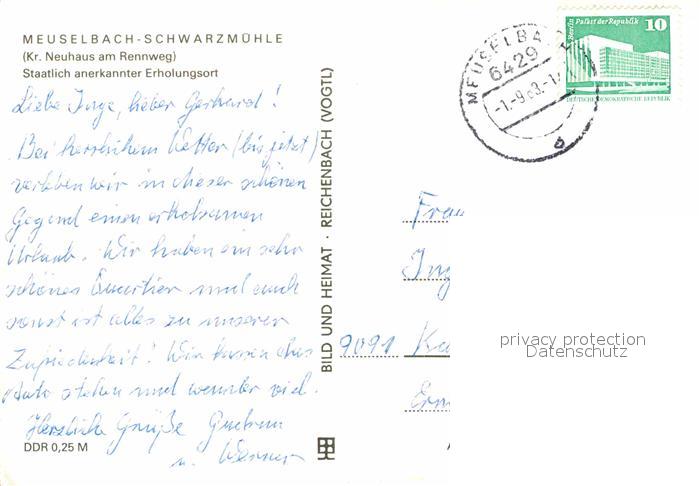 MEUSELBACH-SCHWARZMÜHLE
(Kr. Neuhaus am Rennweg)
Staatlich anerkannter Erholungsort
Liebe Inge, lieber Gerhard!
Bei herrlichem Wetter (bis jetzt)
verleben wir in dieser schönen
Gegend einen erholsamen
Urlaub. Wir haben ein sehr
schönes Quartier und auch
sonst ist alles zu unserer
Zufriedenheit! Wir lassen das
Auto stehen und wandern viel.
Herzliche Grüße Gudrun
u. Werner
DDR 0,25 M
BILD UND HEIMAT · REICHENBACH (VOGTL)
MEUSELBA
6429
-1.-9.83.-1
b
Berlin Palast der Republik 10
DEUTSCHE DEMOKRATISCHE REPUBLIK
Frau
Ing
9091 Ka
privacy protection
Datenschutz